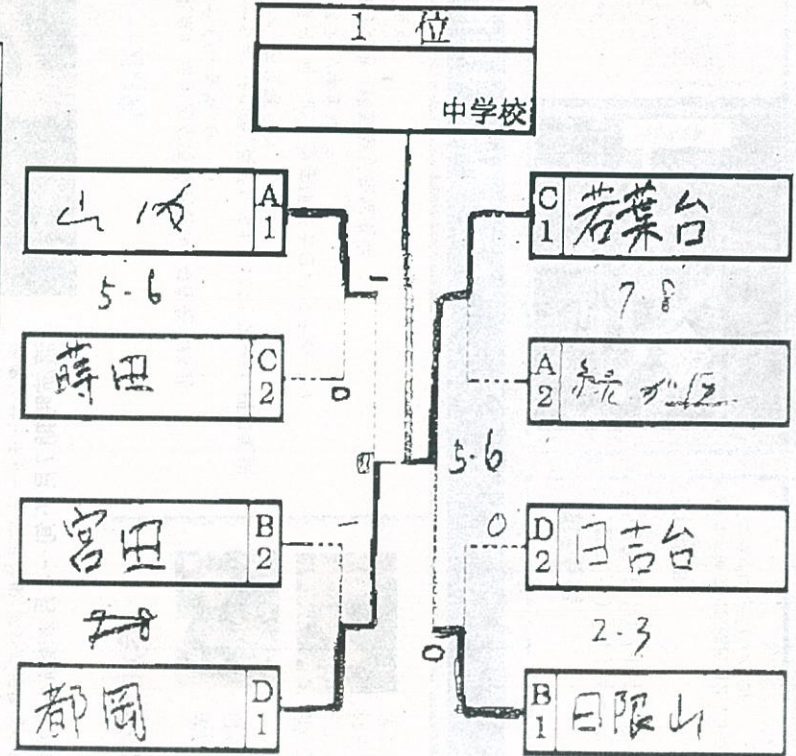 1 位
中学校
山内 A1
5-6
蒔田 C2
0
宮田 B2
都岡 D1
C1 若葉台
7-8
A2 緑が丘
5-6
0
D2 日吉台
2-3
0
B1 日限山